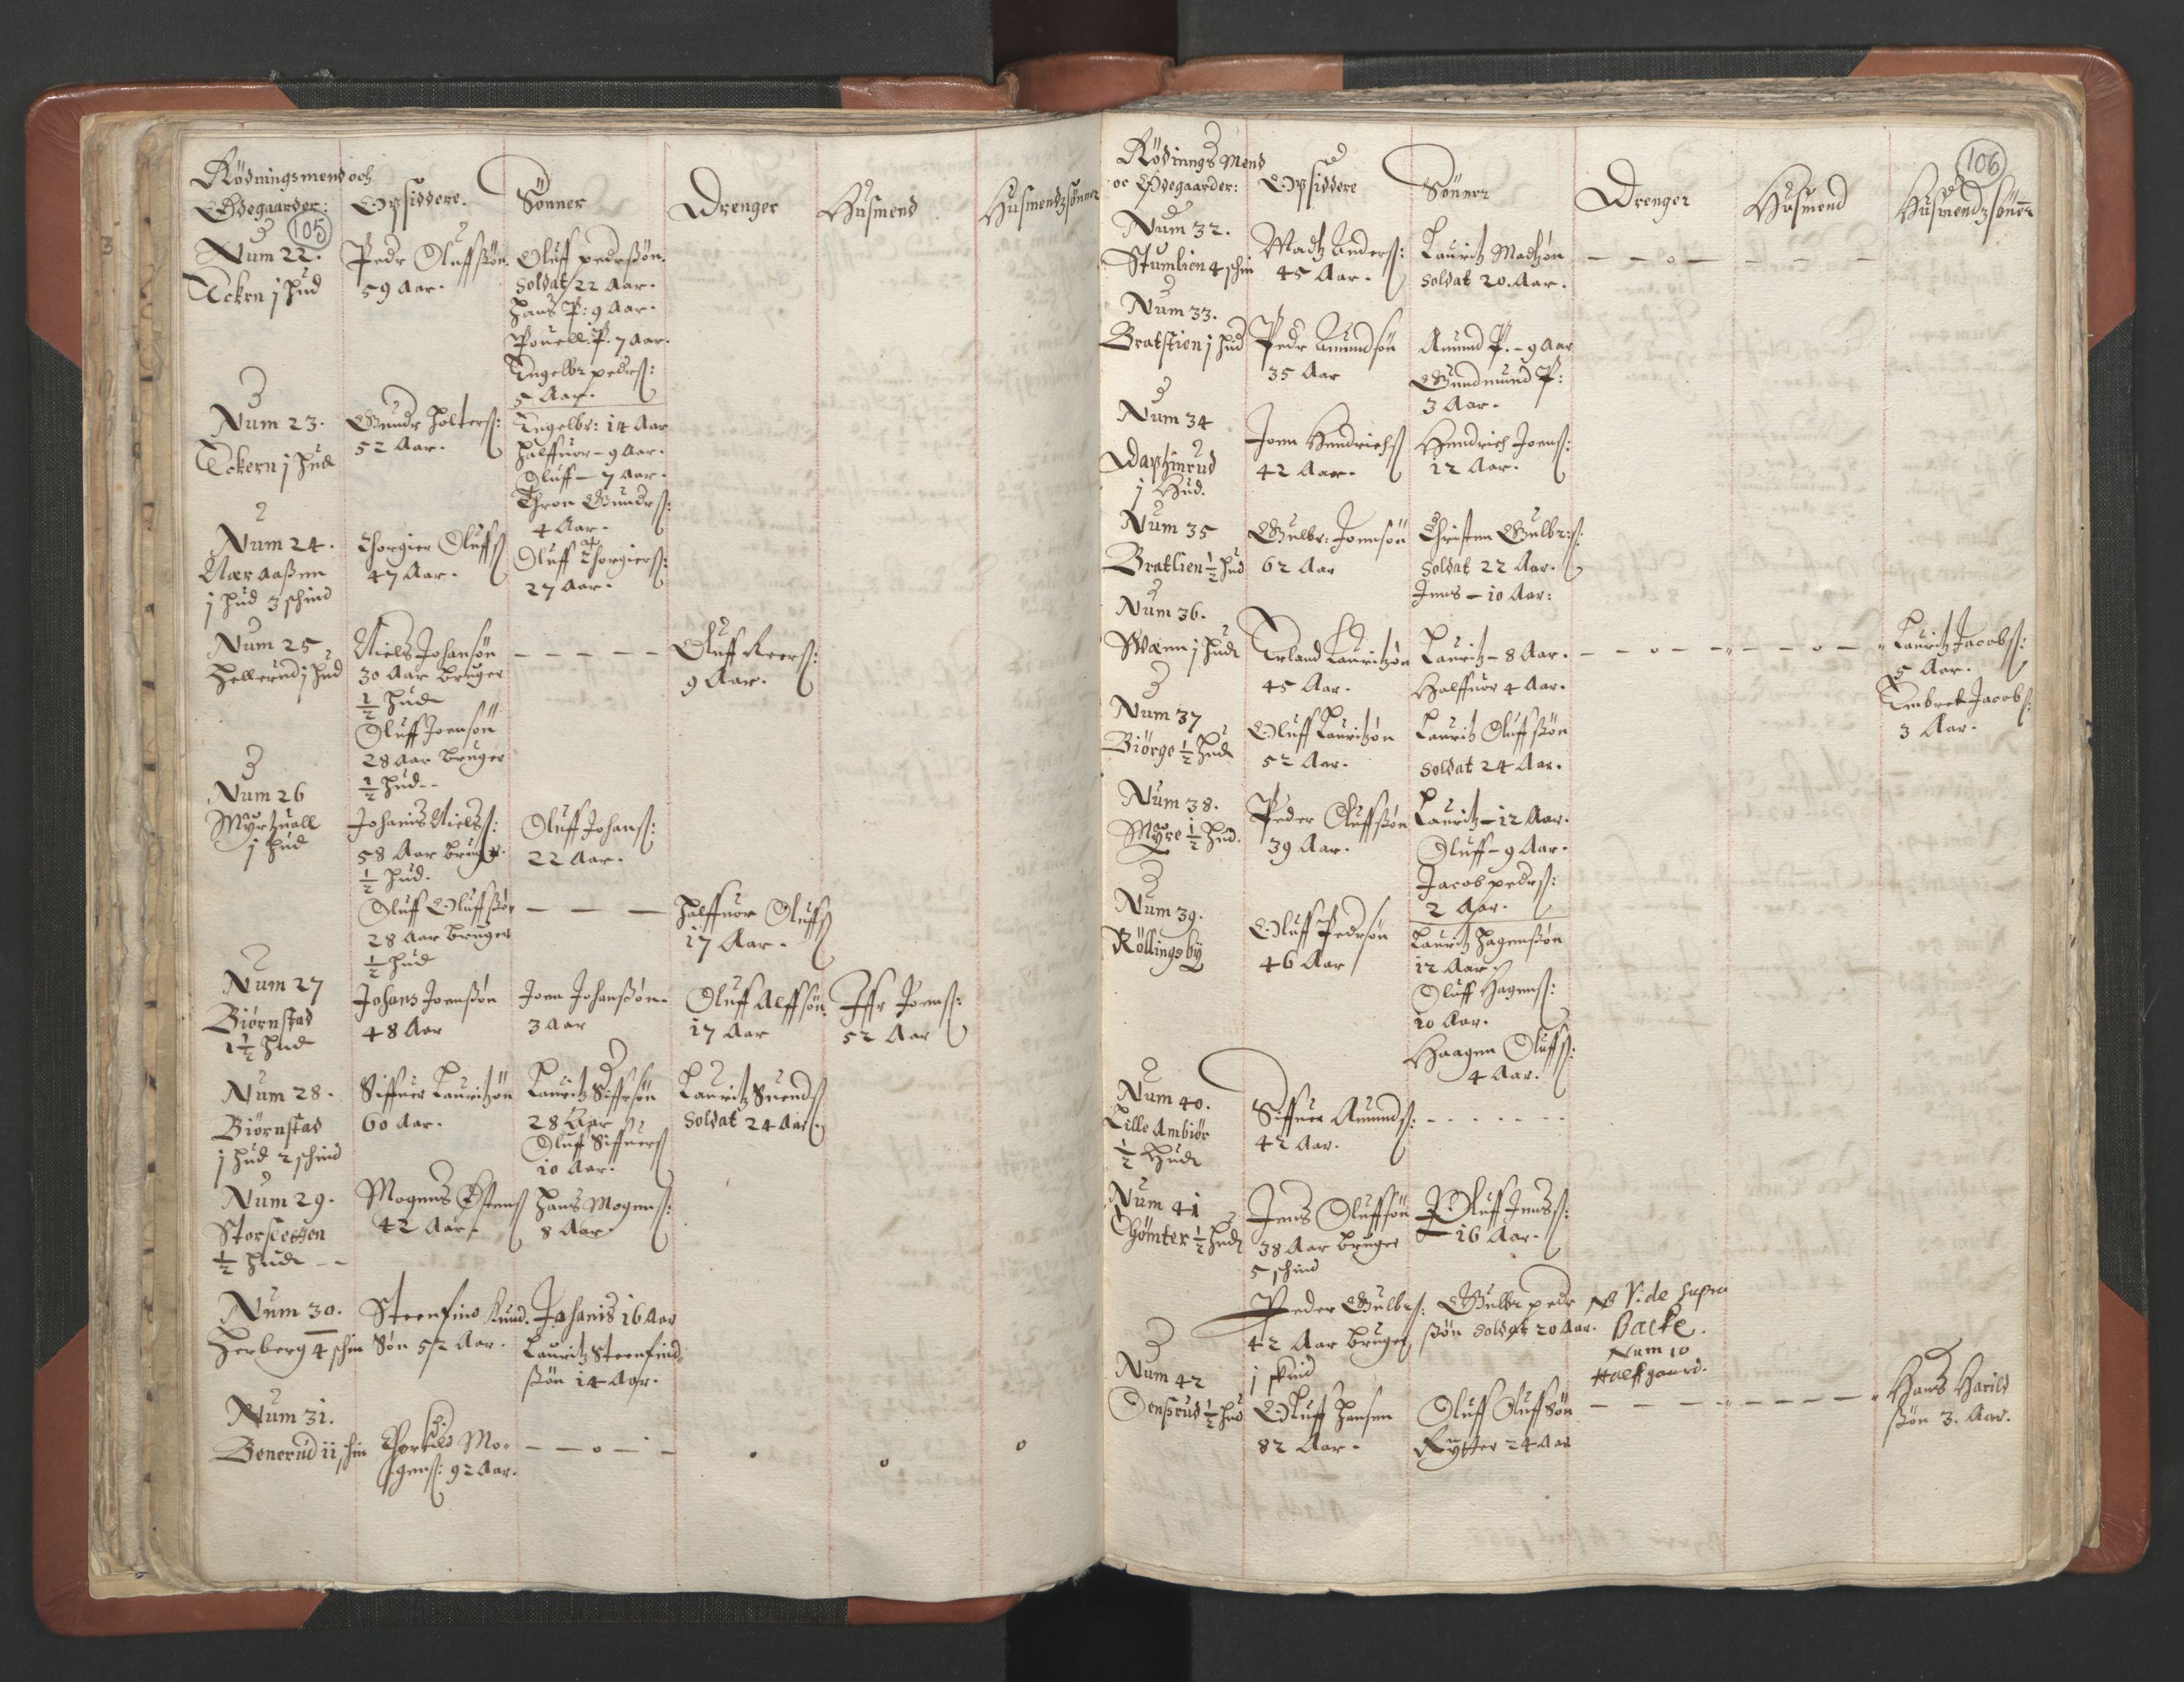 Rödningsmend och
Ødegaarder:
105
Opsiddere.
Sönner
Drenger
Husmend
Husmendzsönner
Num 22.
Eckern j hud
Pedr Oluffsøn
59 Aar.
Oluff pedersøn
soldat 22 Aar.
Hans P: 9 Aar.
Pouell: P. 7 Aar.
Engelbr pederß:
5 Aar.
Num 23.
Eckern j hud
Gundr Holterß:
52 Aar.
Engelbr: 14 Aar
Halffuor - 9 Aar.
Oluff - 7 Aar.
Thron Gundrß:
4 Aar.
Num 24.
Nær aaßen
j hud 3 schind
Thorgier Oluffß
47 Aar.
Oluff Thorgierß:
27 Aar.
Num 25
Hellerud j hud
Niels Johansøn
30 Aar bruger
½ hud
Oluff Joensøn
28 Aar bruger
½ hud--
- - - - -
Oluff Iverß:
9 Aar.
Num 26
Myrtzuall
j hud
Johanis Nielsß:
58 Aar bruger
½ hud.
Oluff Johanß:
22 Aar.
Oluff Oluffsøn
28 Aar bruger
½ hud
- - -
Halffuor Oluffß
17 Aar.
Num 27
Biörnstad
1½ hud
Johans Joenßøn
48 Aar
Joen Johanßøn.
3 Aar
Oluff Alffsøn
17 Aar
Iffr Joenß:
52 Aar
Num 28.
Biörnstad
j hud 2 schind
Siffuer Lauritzøn
60 Aar.
Lauritz Siffrsøn
28 Aar
Oluff Siffuerß
10 Aar.
Lauritz Suendß
Soldat 24 Aar
Num 29.
½ hud --
Mogens Østenß
42 Aar.
Hans Mogenß:
8 Aar
Num 30.
Herberg 4 schin
Steenfind Amund.
Søn 52 Aar.
Johanis 16 Aar
Lauritz Steenfind
ßøn 14 Aar.
Num 31.
Benerud ii schin
Thorkild Mo-
genß: 92 Aar.
- - o - -
106
Rödnings Mend
oc Ødegaarder:
Opsiddere
Sönner
Drenger
Husmend
Husmendzsönner
Num 32.
Stumlien 4 schin
Madtz Anderß:
45 Aar.
Lauritz Madtzøn
soldat 20. Aar.
- - o - - - -
Num 33.
Bratstien j hud
Pedr Amundsøn
35 Aar
Amund P. - 9 Aar
Gundmund P:
3 Aar.
Num 34
j Hud.
Joen Hendrichß
42 Aar.
Hendrich Joenß:
12 Aar.
Num 35
Bratlien ½ hud
Gulbr: Joensøn
62 Aar
Christen Gulbr:ß:
Soldat 22 Aar.
Jens - 10 Aar:
Num 36.
Moenn j hud
Erland Lauritzøn
45 Aar.
Lauritz - 8 Aar.
Halffuor 4 Aar.
- - o - - - - o -
Lauritz Jacobß:
5 Aar.
Embret Jacobß:
3 Aar.
Num 37
Biörge ½ hud
Oluff Lauritzøn
52 Aar.
Lauritz Oluffßøn
soldat 24 Aar.
Num 38.
Myre ½ hud.
Peder Oluffßøn
39 Aar.
Lauritz - 12 Aar.
Oluff - 9 Aar.
Jacob pedrß:
2 Aar.
Num 39.
Röllingsby
Oluff Pedrsøn
46 Aar
Lauritz Hagenßøn
12 Aar
Oluff Hagenß:
10 Aar.
Haagen Oluffß:
4 Aar.
Num 40.
Lille Ambiör
½ Hud
Siffuer Amundß:
42 Aar.
- - - - - -
Num 41
Thömter ½ hud
Jens Oluffsøn
38 Aar bruger
5 schind
Oluff Jensß:
16 Aar.
Peder Gulbrß:
42 Aar bruger
j skind
Gulbr pedr
ßøn soldat 20 Aar.
NB Vide supra
Backe.
Num 10
Halffgaard.
Num 42
Densrud ½ hud
Oluff Hansen
82 Aar.
Oluff Oluffsøn
Rytter 24 Aar
- - - - - - -
Hans Harild
ßøn 3. Aar.